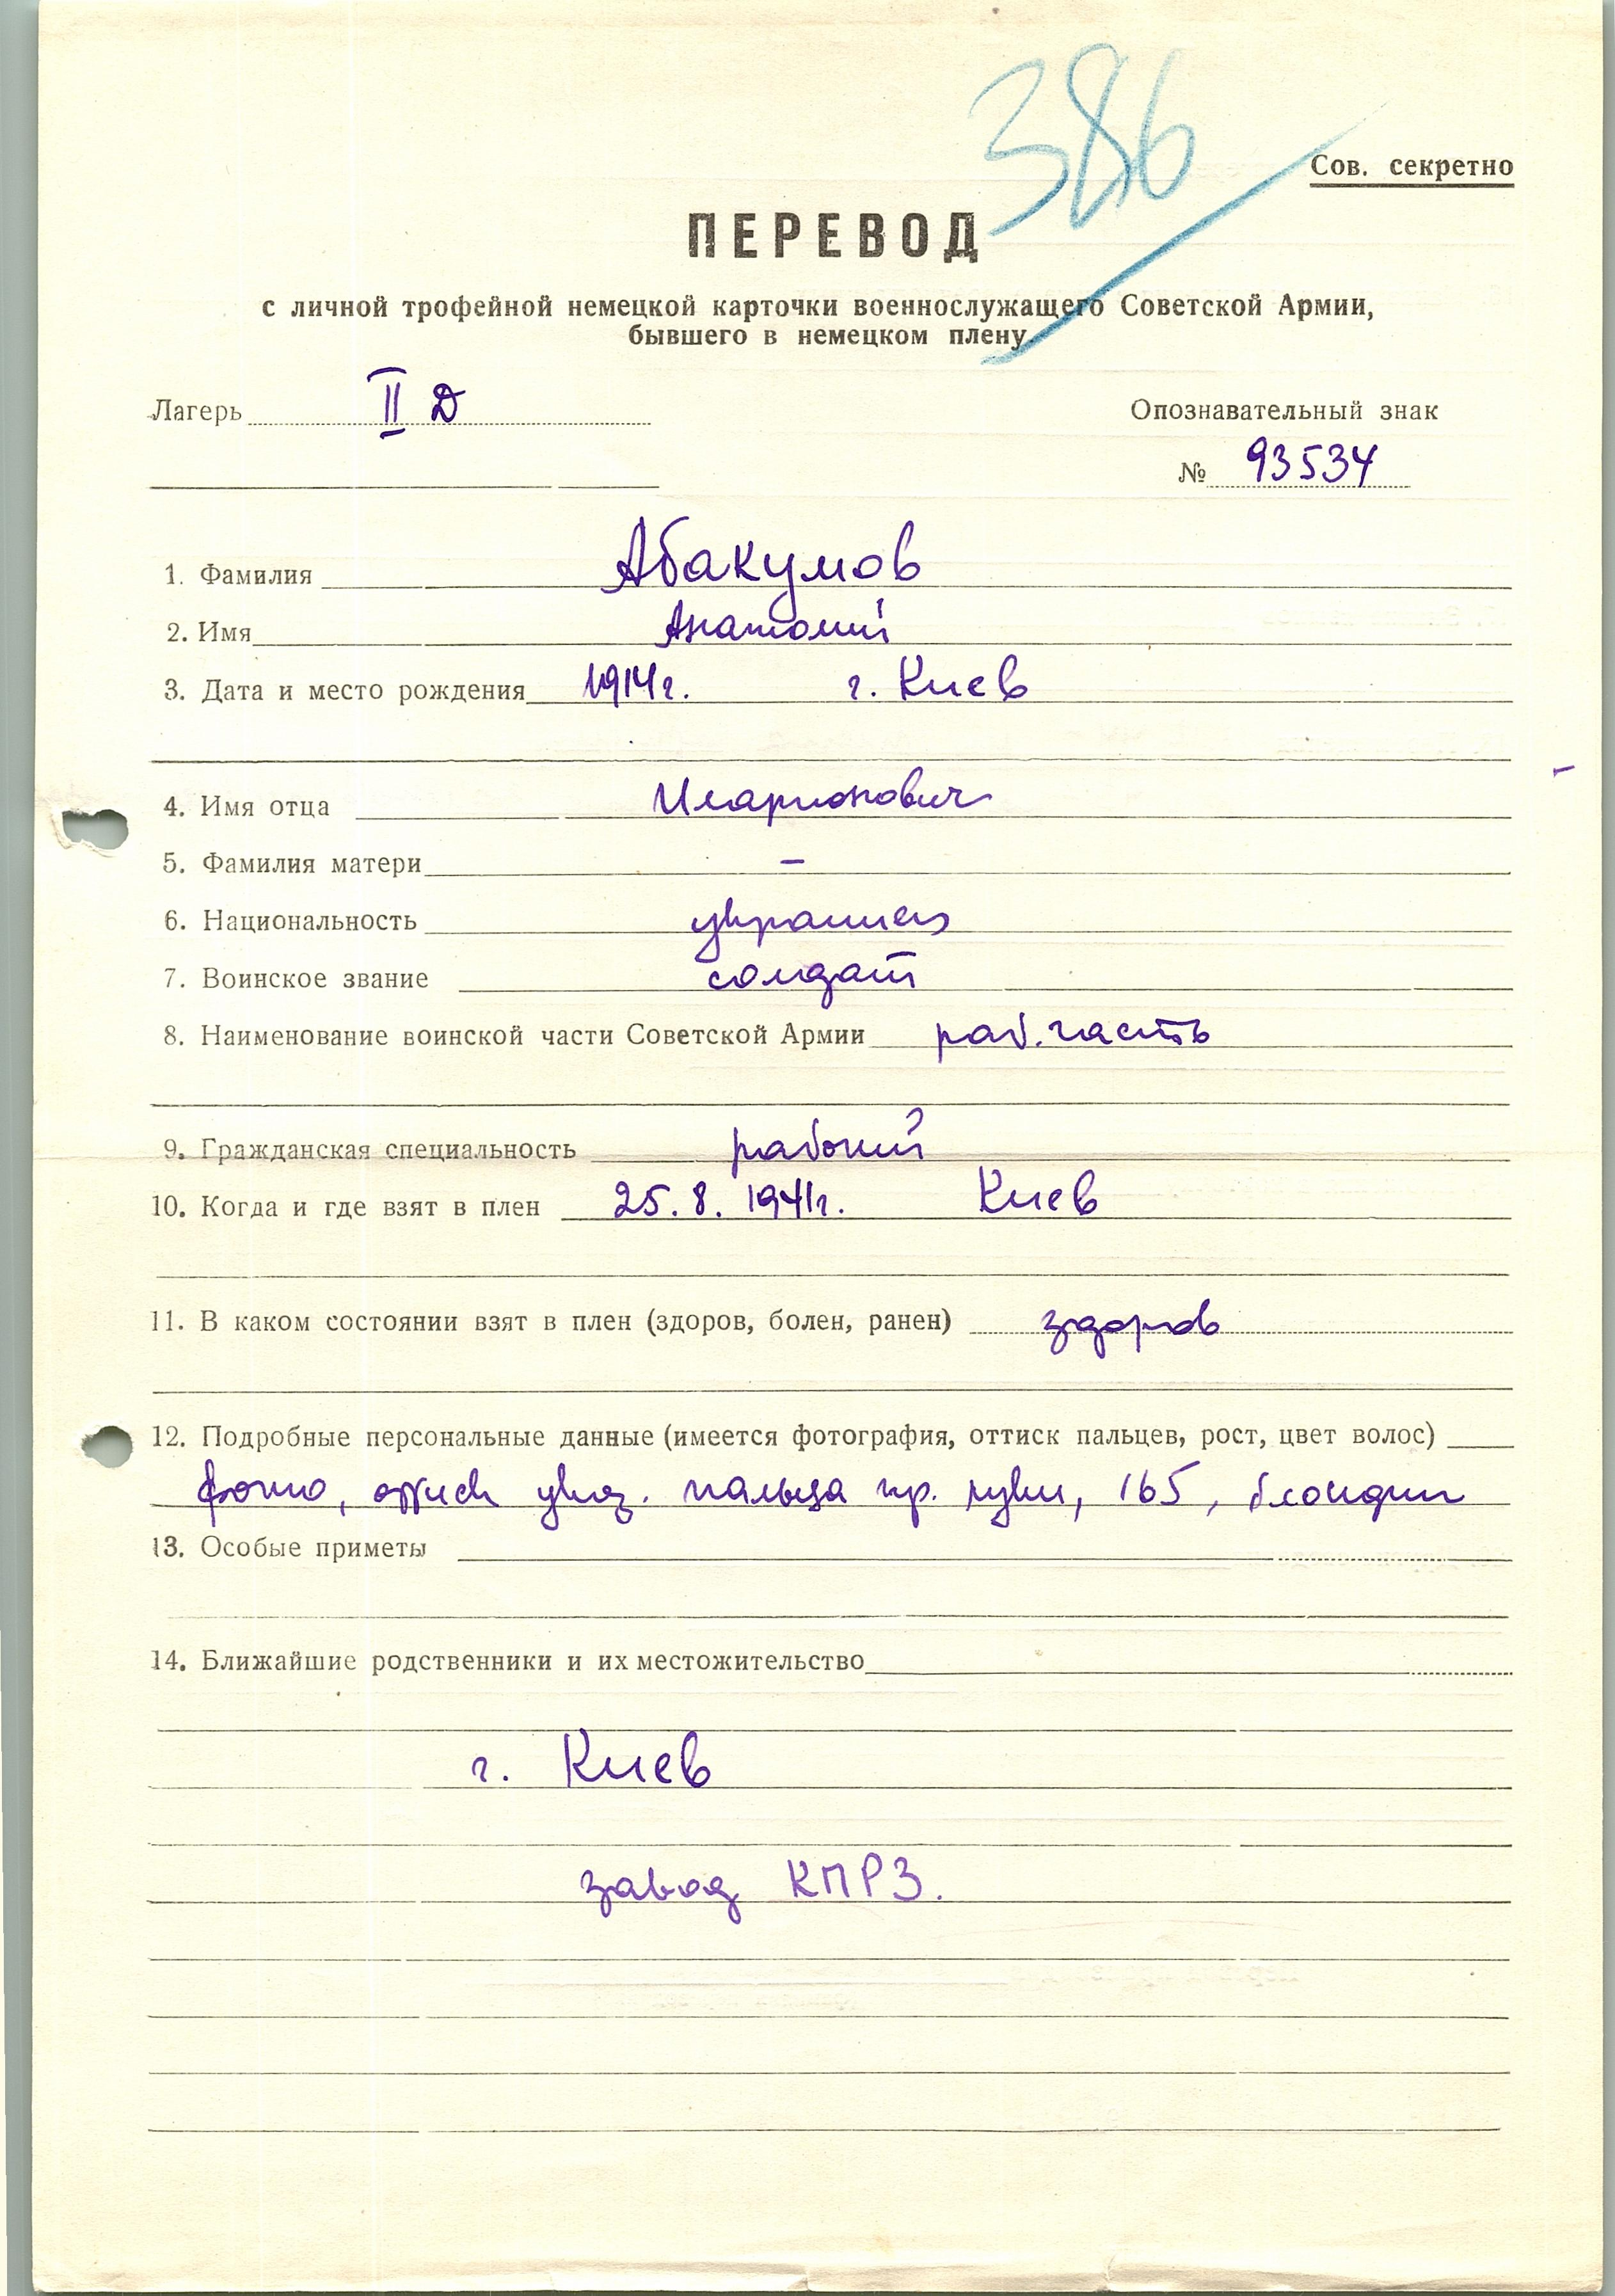 386
Сов. секретно
ПЕРЕВОД
с личной трофейной немецкой карточки военнослужащего Советской Армии,
бывшего в немецком плену
Лагерь II D
Опознавательный знак
№ 93534
1. Фамилия Абакумов
2. Имя Анатолий
3. Дата и место рождения 1914г. г. Киев
4. Имя отца Иларионович
5. Фамилия матери –
6. Национальность украинец
7. Воинское звание солдат
8. Наименование воинской части Советской Армии раб. часть
9. Гражданская специальность рабочий
10. Когда и где взят в плен 25.8.1941г. Киев
11. В каком состоянии взят в плен (здоров, болен, ранен) здоров
12. Подробные персональные данные (имеется фотография, оттиск пальцев, рост, цвет волос)
фото, оттиск указ. пальца пр. руки, 165, блондин
13. Особые приметы
14. Ближайшие родственники и их местожительство
г. Киев
завод КПРЗ.